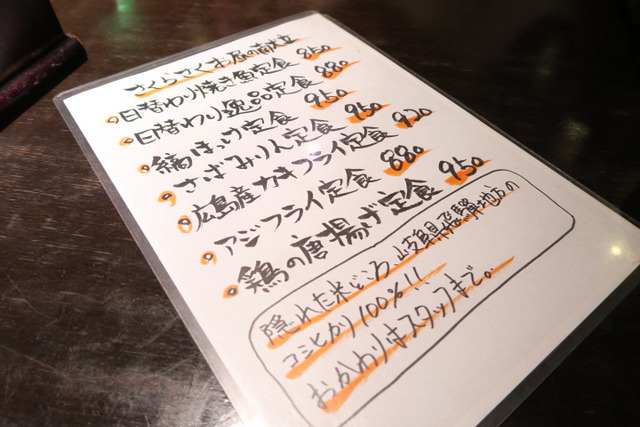 さくらさくお昼の献立
日替わり焼き魚定食 850
日替わり逸品定食 880
縞ほっけ定食 950
さばみりん定食 950
広島産カキフライ定食 920
アジフライ定食 880
鶏の唐揚げ定食 950
隠れた米どころ、岐阜県飛騨地方の
コシヒカリ100%!!
おかわりはスタッフまで。